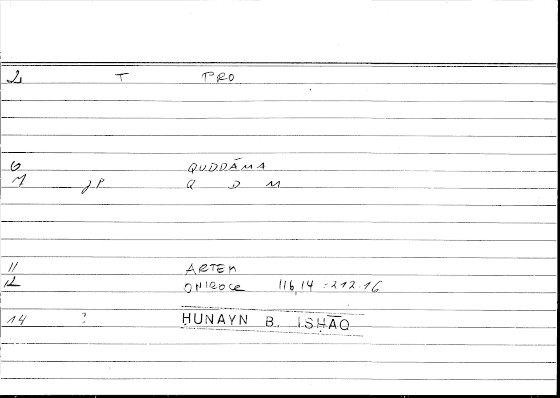 2 T PRO
6 QUDDĀMA
7 JP Q D M
11 ARTEM
12 ONIROCR 116,14 = 212.16
14 ? ḤUNAYN B. ISḤĀQ